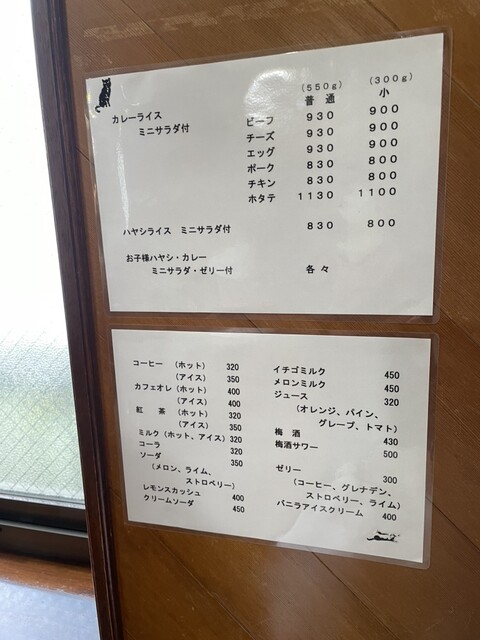 （550g） （300g）
普通 小
カレーライス
ミニサラダ付
ビーフ 930 900
チーズ 930 900
エッグ 930 900
ポーク 830 800
チキン 830 800
ホタテ 1130 1100
ハヤシライス ミニサラダ付 830 800
お子様ハヤシ・カレー
ミニサラダ・ゼリー付 各々
コーヒー （ホット） 320
（アイス） 350
カフェオレ（ホット） 400
（アイス） 400
紅 茶 （ホット） 320
（アイス） 350
ミルク（ホット、アイス）320
コーラ 320
ソーダ 350
（メロン、ライム、
ストロベリー）
レモンスカッシュ 400
クリームソーダ 450
イチゴミルク 450
メロンミルク 450
ジュース 320
（オレンジ、パイン、
グレープ、トマト）
梅 酒 430
梅酒サワー 500
ゼリー 300
（コーヒー、グレナデン、
ストロベリー、ライム）
バニラアイスクリーム 400